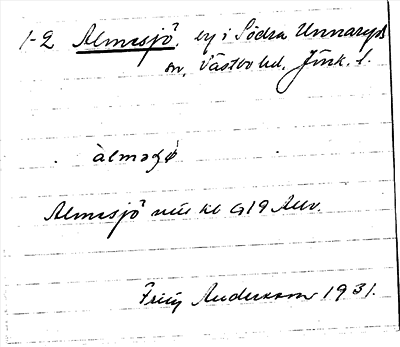 1-2 Almesjö, by i Södra Unnaryds
sn, Västbo hd, Jönk. l.
àlməʃø
Almesjö kl G19 Allv.
Andersson 1931.